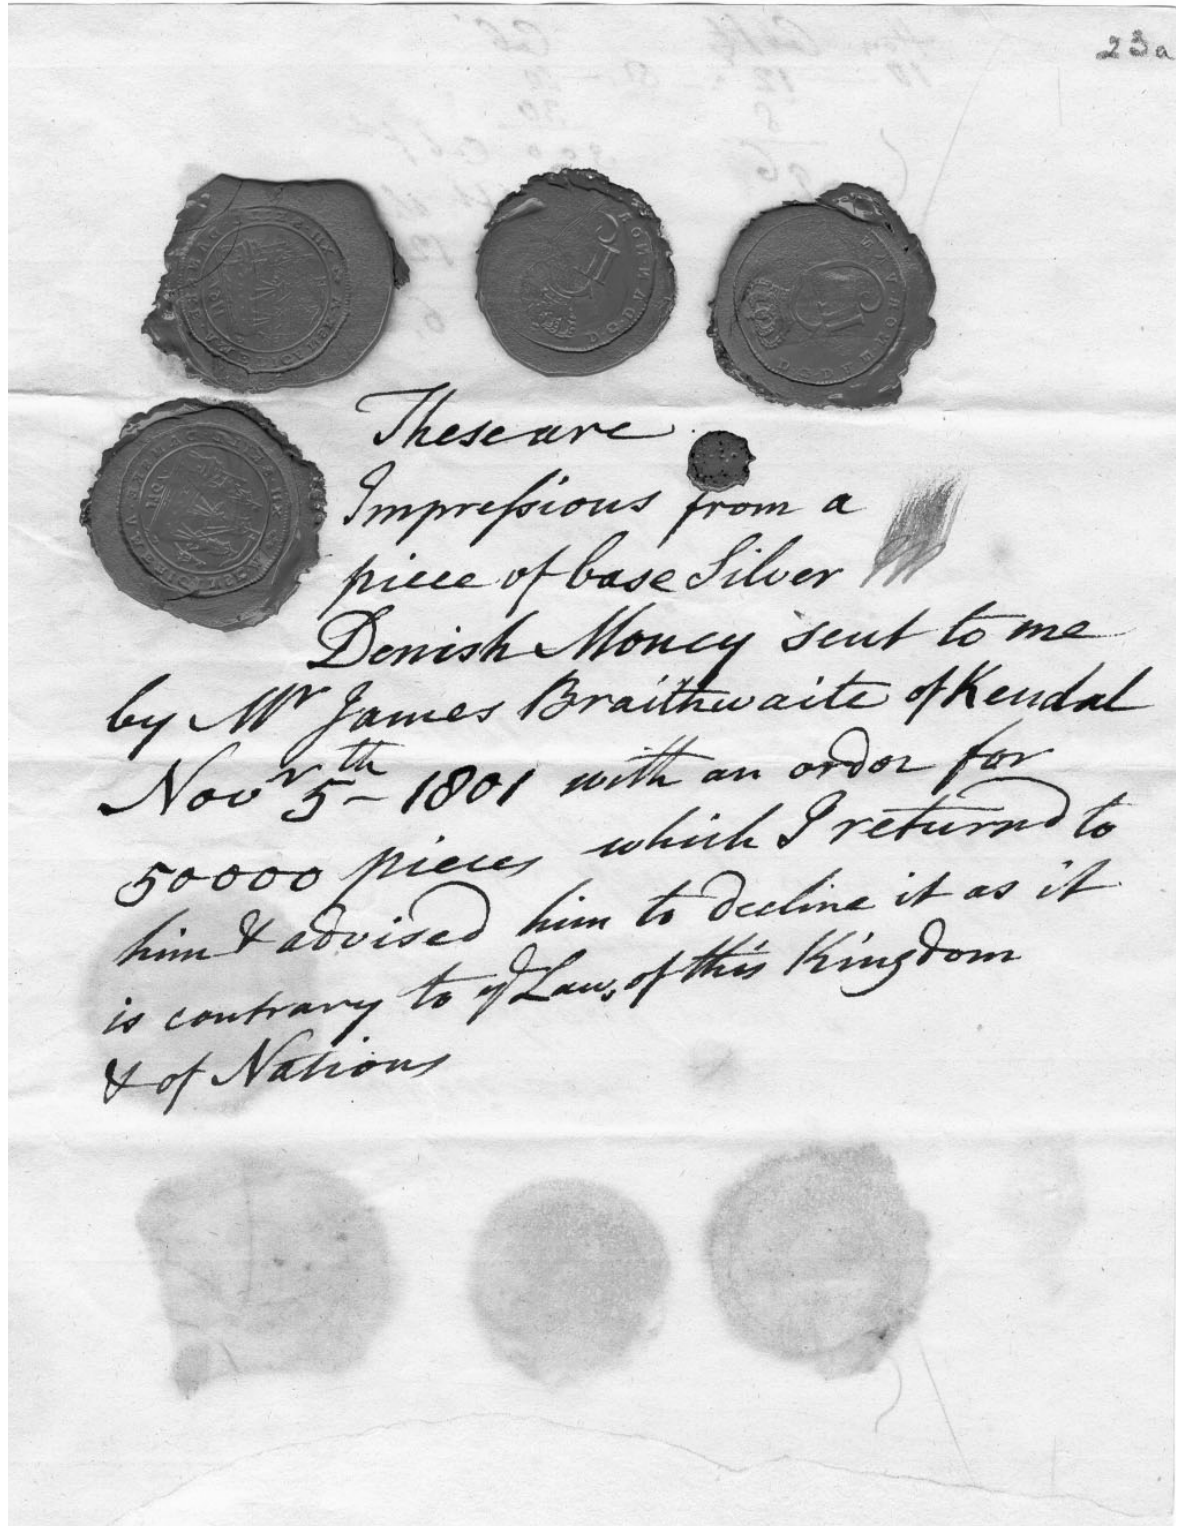 23a
These are
Impreſsions from a
piece of base Silver
Denish Money sent to me
by Mr James Braithwaite of Kendal
Novr 5th - 1801 with an order for
50000 pieces which I returned to
him & advised him to decline it as it
is contrary to ye Laws of this Kingdom
& of Nations